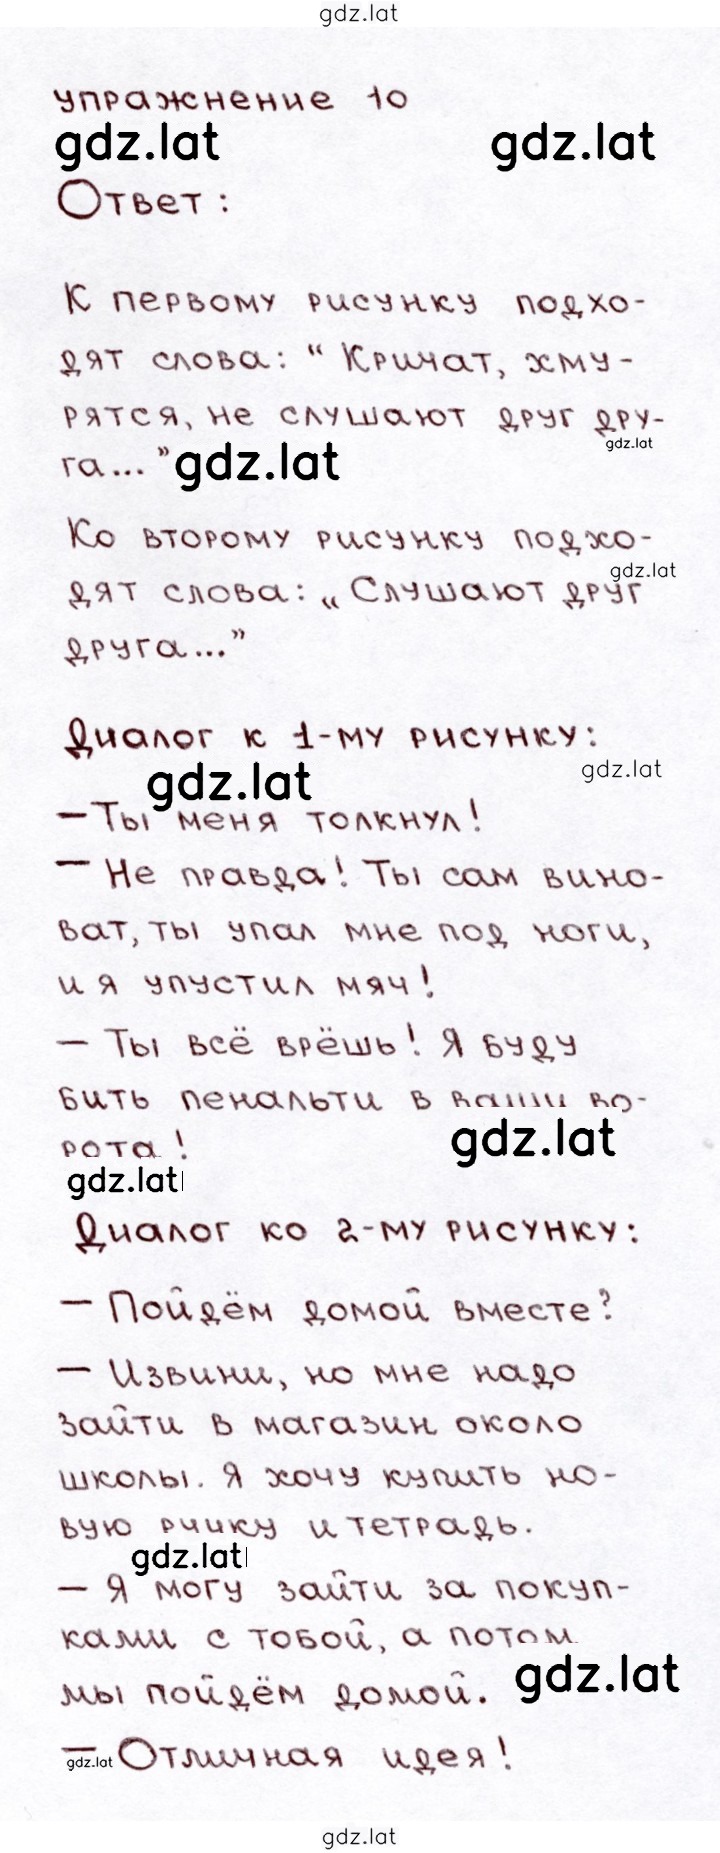 gdz.lat
упражнение 10
gdz.lat gdz.lat
Ответ:
К первому рисунку подхо-
дят слова: “Кричат, хму-
рятся, не слушают друг дру-
gdz.lat
га...” gdz.lat
Ко второму рисунку подхо-
gdz.lat
дят слова: „Слушают друг
друга...”
Диалог к 1-му рисунку:
gdz.lat gdz.lat
– Ты меня толкнул!
– Не правда! Ты сам вино-
ват, ты упал мне под ноги,
и я упустил мяч!
– Ты всё врёшь! Я буду
бить пенальти в ваши во-
рота! gdz.lat
gdz.lat
Диалог ко 2-му рисунку:
– Пойдём домой вместе?
– Извини, но мне надо
зайти в магазин около
школы. Я хочу купить но-
вую ручку и тетрадь.
gdz.lat
– Я могу зайти за покуп-
ками с тобой, а потом
мы пойдём домой. gdz.lat
– Отличная идея!
gdz.lat
gdz.lat